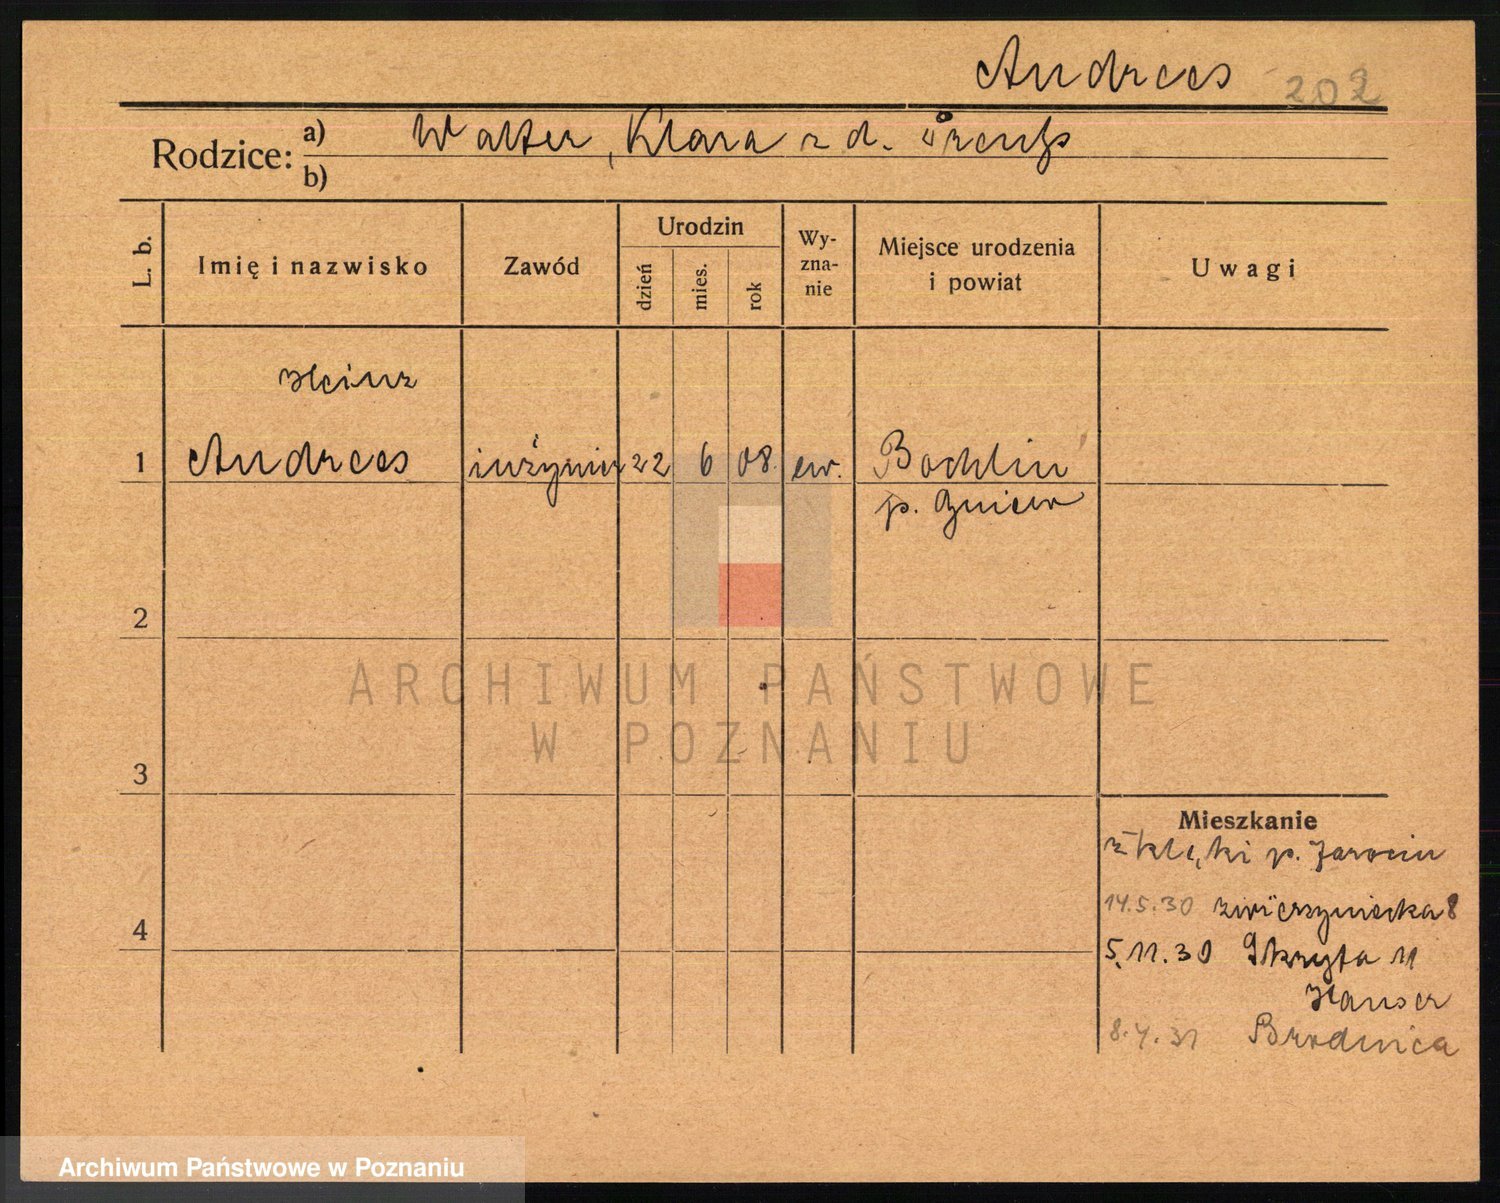 Andrees 202
Rodzice: a) Walter, Klara z d.
b)
L. b. Imię i nazwisko Zawód Urodzin dzień mies. rok Wy-zna-nie Miejsce urodzenia i powiat Uwagi
Heinz
1 Andrees inżynier 22 6 08. ew. Bochlin
p. Gniew
2
ARCHIWUM PAŃSTWOWE
W POZNANIU
3
Mieszkanie
p. Jarocin
14.5.30 Zwierzyniecka 8
4
5.11.30 Skryta 11
Hauser
8.4.31 Brodnica
Archiwum Państwowe w Poznaniu